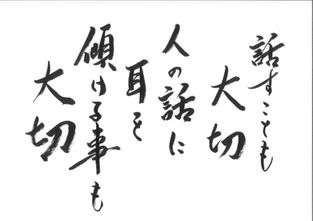 話すことも
大切
人の話に
耳を
傾ける事も
大切